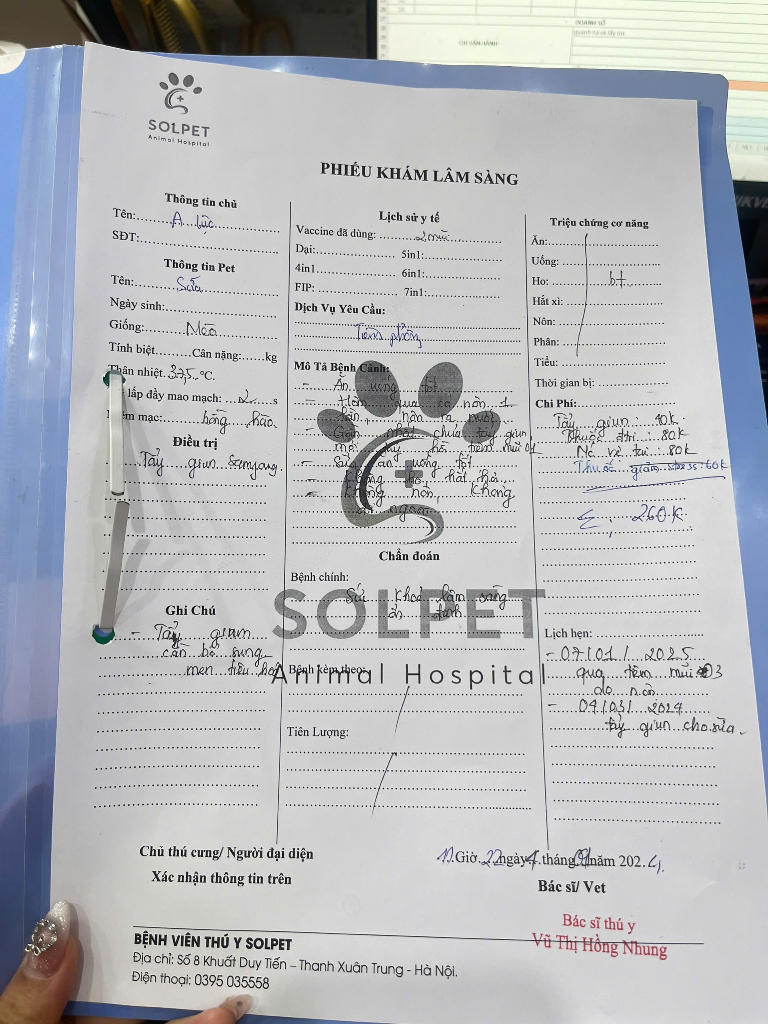 SOLPET
Animal Hospital
PHIẾU KHÁM LÂM SÀNG
Thông tin chủ
Tên: A Lực
SĐT:
Thông tin Pet
Tên: Sữa
Ngày sinh:
Giống: Mèo
Tính biệt Cân nặng: kg
Thân nhiệt. 37,5 °C.
lấp đầy mao mạch: 2 s
mạc: hồng hào
Điều trị
Tẩy giun Samyang
Ghi Chú
- Tẩy giun
cần bổ sung
men tiêu hoá
Lịch sử y tế
Vaccine đã dùng: 2 mũi
Dại: 5in1:
4in1 6in1:
FIP: 7in1:
Dịch Vụ Yêu Cầu:
Tiêm phòng
Mô Tả Bệnh Cảnh:
- Ăn uống tốt
- Hôm qua có nôn 1
lần, nôn ra
- Gần nhất chưa tẩy giun
mũi 01
- Sữa ăn uống tốt
- Không ho hắt hơi
- Không nôn, không
Chẩn đoán
Bệnh chính:
Sức khoẻ lâm sàng
ổn định
SOLPET
Animal Hospital
Bệnh kèm theo:
Tiên Lượng:
Triệu chứng cơ năng
Ăn:
Uống:
Ho: bt
Hắt xì:
Nôn:
Phân:
Tiểu:
Thời gian bị:
Chi Phí:
Tẩy giun: 40k
Thuốc : 80k
Nc vs tai: 80k
Thuốc giảm stress: 60k
Σ: 260K
Lịch hẹn:
- 07/01/2025
qua tiêm mũi 03
do nôn
- 04/03/2024
tẩy giun cho sữa
Chủ thú cưng/ Người đại diện
Xác nhận thông tin trên
Giờ. ngày tháng năm 2024.
Bác sĩ/ Vet
Bác sĩ thú y
Vũ Thị Hồng Nhung
BỆNH VIÊN THÚ Y SOLPET
Địa chỉ: Số 8 Khuất Duy Tiến – Thanh Xuân Trung - Hà Nội.
Điện thoại: 0395 035558